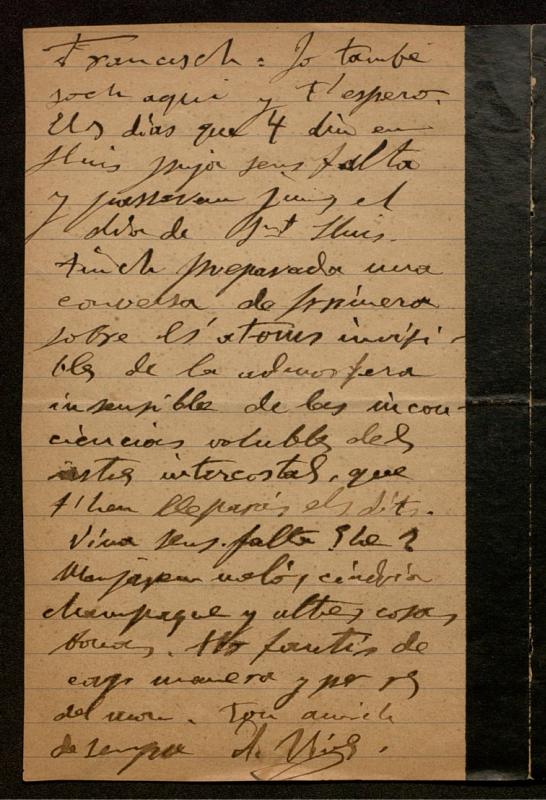 Francisch: Jo també
soch aqui y t'espero.
Els dias que 4 diu en
Lluis puja sens falta
y passarem junts el
dia de Sant Lluis.
Tinch preparada una
conversa de primera
sobre els átoms invisi-
bles de la admosfera
insensible de las incon-
ciencias volubles dels
intercostals, que
t'hen lleparás els dits.
Vina sens falta ¿he?
Menjarem meló, cindria
champagne y altres cosas
bonas. No faltis de
cap manera y per res
del mon. Ton amich
de sempre A.